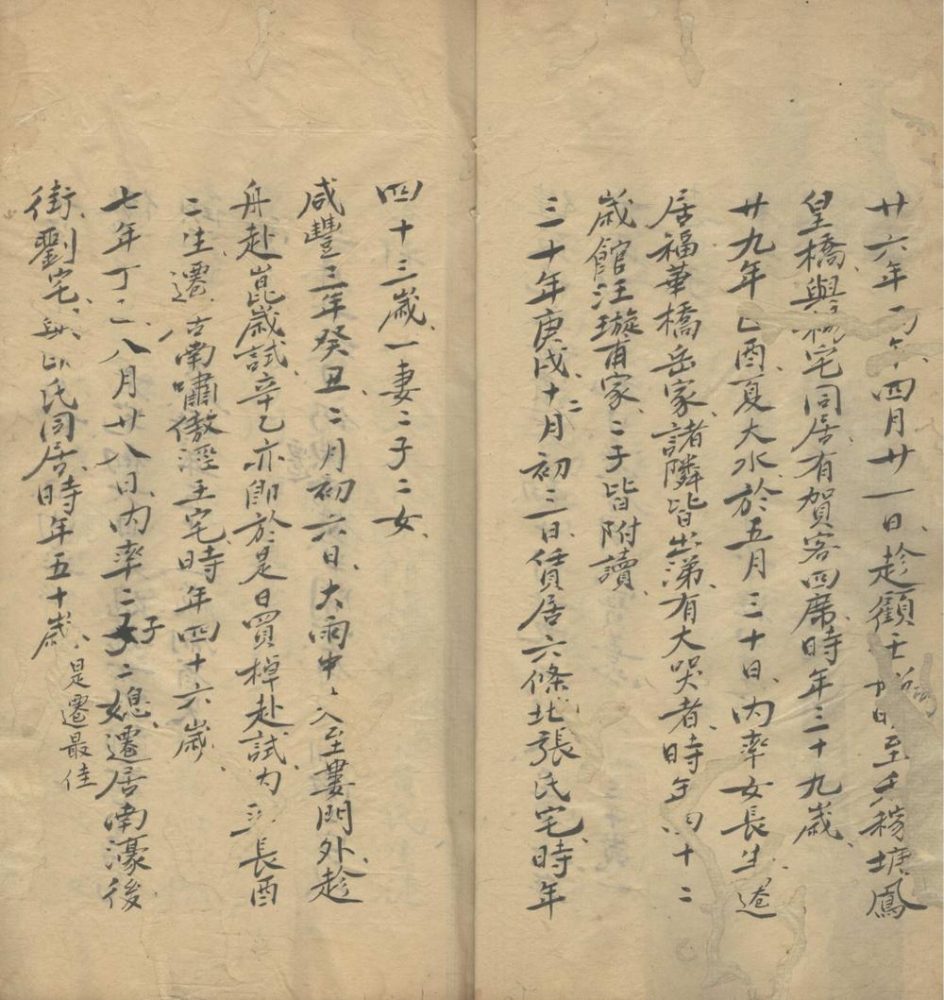 廿六年丙午四月廿一日趁顧
皇橋與楊宅同居有賀客四席時年三十九歲
廿九年己酉夏大水於五月三十日內率女長生遷
居福華橋岳家諸隣皆出涕有大哭者時年四十二
歲館汪璇甫家二子皆附讀
三十年庚戌十二月初三日賃居六條北張氏宅時年
四十三歲一妻二子二女
咸豐三年癸丑二月初六日大雨中入至婁門外趁
舟赴崑歲試辛乙亦即於是日買棹赴試內長酉
二生遷居南嘯傲涇王宅時年四十六歲
七年丁巳八月廿八日內率二子二媳遷居南濠後
街劉宅氏同居時年五十歲是遷最佳